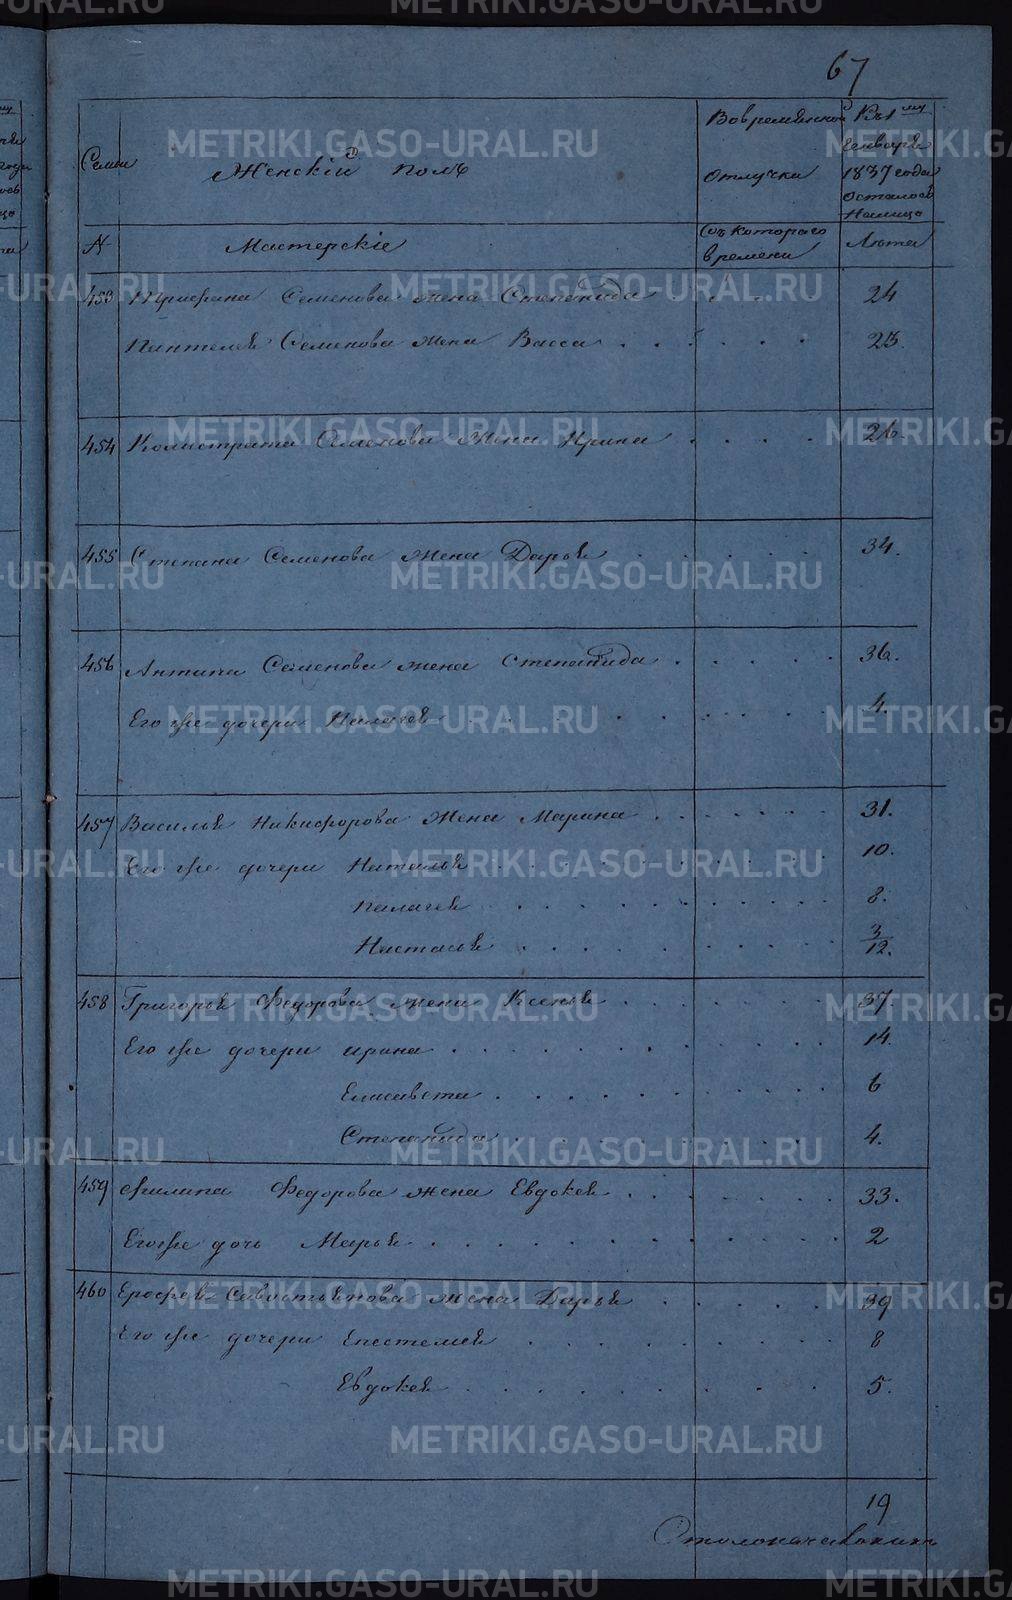 67
Семьи
Женскій полъ
Вовременной отлучке
Къ 1му Генваря 1837 года осталось на лицо
№
Мастерскіе
Съ котораго времени
Лѣта
453 Трифана Семенова жена Степанида 24
Пантелея Семенова жена Васса 23.
454 Калистрата Семенова жена Ирина 26.
455 Степана Семенова жена Дарья 34.
456 Антипа Семенова жена Степанида 36.
Его же дочери Палагея 4.
457 Василья Никифорова жена Марина 31.
Его же дочери Наталья 10.
Палагея 8.
Настасья 3/12.
458 Григорья Федорова жена Ксенья 37.
Его же дочери Ирина 14.
Елисавета 6
Степанида 4.
459 Филипа Федорова жена Евдокея 33.
Его же дочь Марья 2
460 Ерофея Савостьянова жена Дарья 39
Его же дочери Епестемея 8
Евдокея 5.
19
METRIKI.GASO-URAL.RU